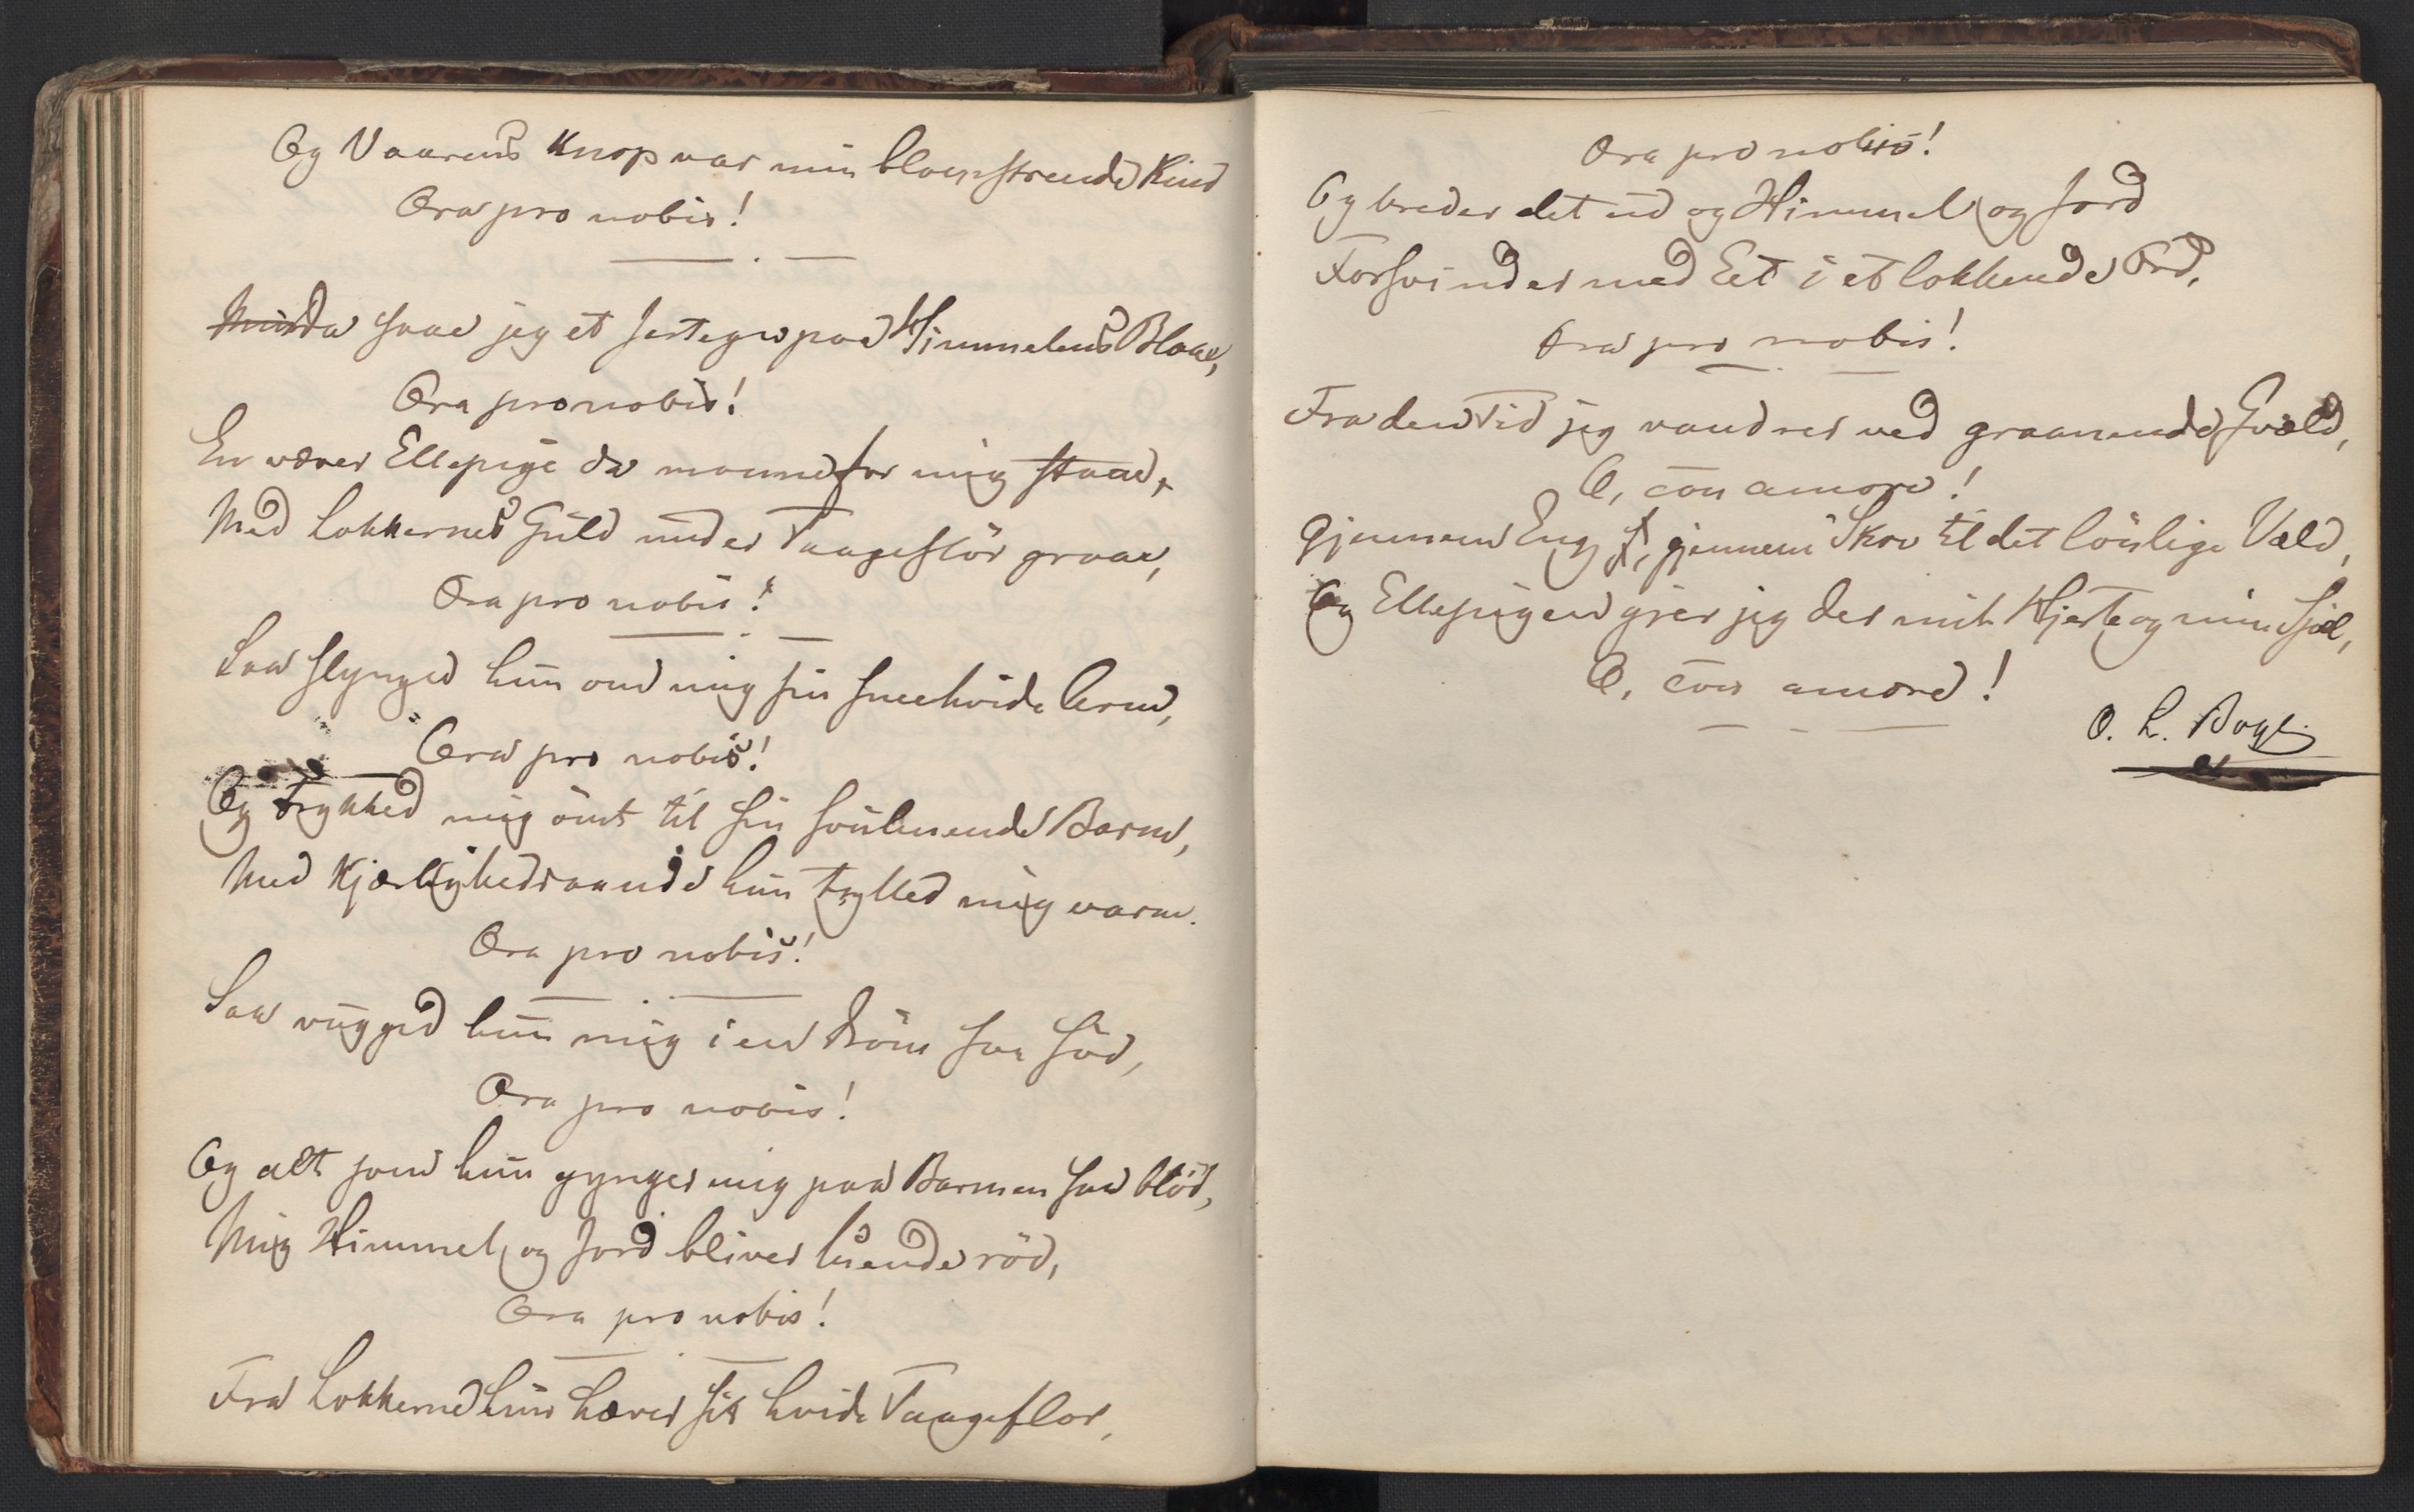 Og Vaarens Knop var min blomstrende Kind
Ora pro nobis!
Da saae jeg et Jertegn paa Himmelens Blaae,
Ora pro nobis!
En væver Ellepige da monne for mig staae,
Med Lokkernes Guld under Taageslör graae,
Ora pro nobis!
Saa slynged hun om mig sin sneehvide Arm,
Ora pro nobis!
Og trykked mig ömt til sin svulmende Barm,
Med Kjærlighedsaande hun trylled mig varm.
Ora pro nobis!
Saa vugged hun mig i en Dröm saa söd,
Ora pro nobis!
Og alt som hun gynger mig paa Barmen saa blöd,
Mig Himmel og Jord bliver luende röd,
Ora pro nobis!
Fra Lokkerne hun hæver sit hvide Taageflor,
Ora pro nobis!
Og breder det ud og Himmel og Jord
Forsvinder med Eet i et lokkende Ord,
Ora pro nobis!
Fra den Tid jeg vandrer ved graanende Qvæld,
O, con amore!
Gjennem Eng, gjennem Skov til det lönlige Væld,
Og Ellepigen giver jeg der mit Hjerte og min Sjæl,
O, con amore!
O. L.